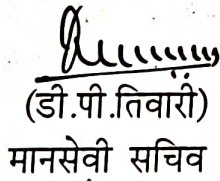 (डी.पी.तिवारी)
मानसेवी सचिव